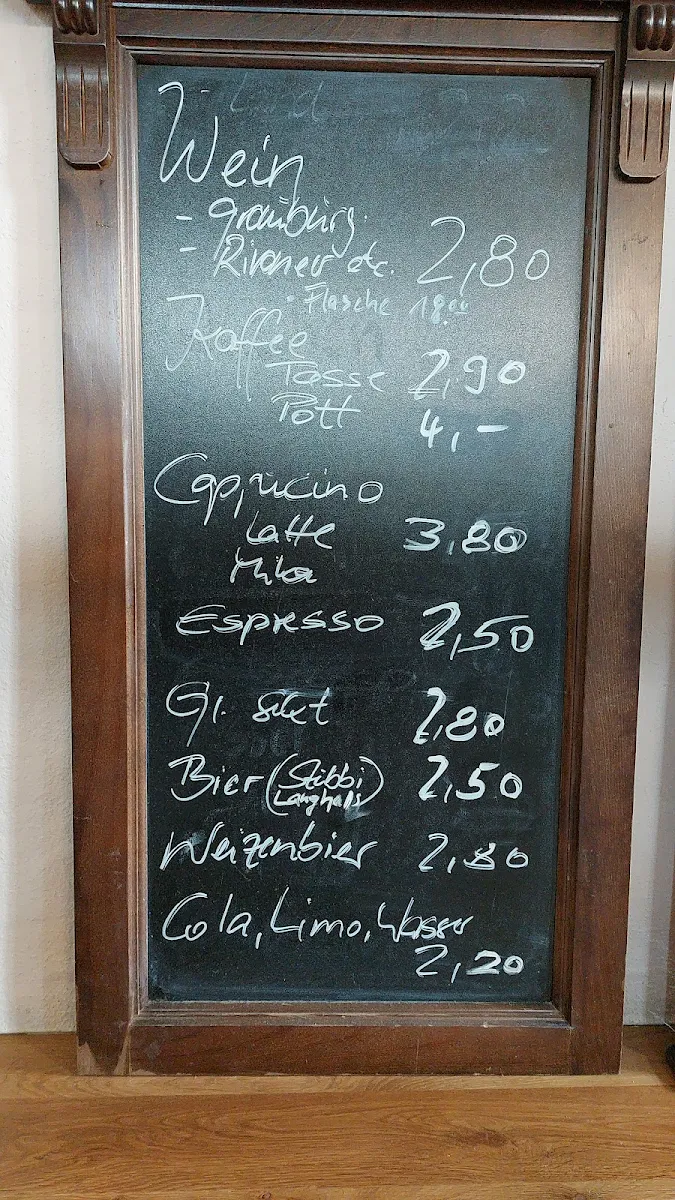 Wein
- Grauburg.
- Rivaner etc. 2,80
• Flasche 18.00
Kaffee
Tasse 2,90
Pott 4,-
Cappucino
Latte 3,80
Mika
Espresso 2,50
Gl. Sekt 2,80
Bier (Stubbi Langhals) 2,50
Weizenbier 2,80
Cola, Limo, Wasser
2,20